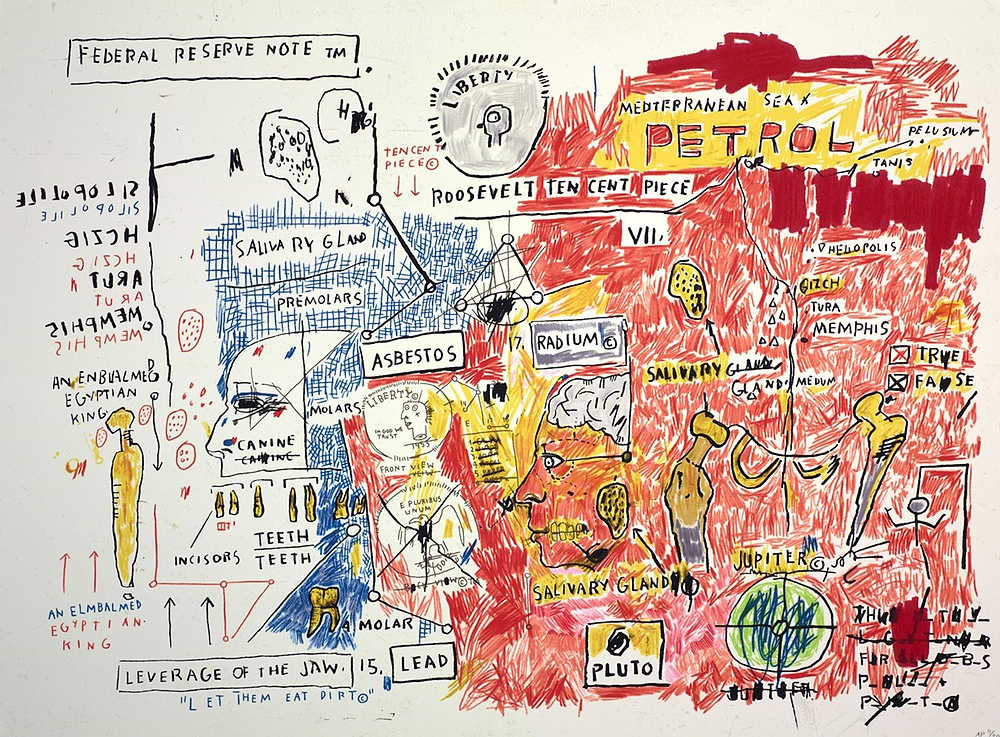 FEDERAL RESERVE NOTE TM.
LIBERTY
TEN CENT
PIECE©
ROOSEVELT TEN CENT PIECE
MEDTERRANEAN SEA
PETROL
PELUSIUM
TANIS
VII.
SILOPOLITE
SILOPOLITE
HCZIG
HCZIG
ARUT
ARUT
MEMPHIS
MEMPHIS
SALIVARY GLAND
PREMOLARS
ASBESTOS
17.
RADIUM ©
HELOPOLIS
GITZH
TURA
MEMPHIS
TRUE
FALSE
AN ENBUALMED
EGYPTIAN
KING
MOLARS
CANINE
CANINE
LIBERTY©
IN GOD WE
TRUST
1935
FRONT VIEW
VIEW
E PLURIBUS
UNUM
SALIVARY GLAND
GLAND
MEDUM
INCISORS
TEETH
TEETH
SALIVARY GLAND
JUPITER
AN ELMBALMED
EGYPTIAN
KING
MOLAR
LEVERAGE OF THE JAW.
15.
LEAD
PLUTO
"LET THEM EAT DIRT©"
AP